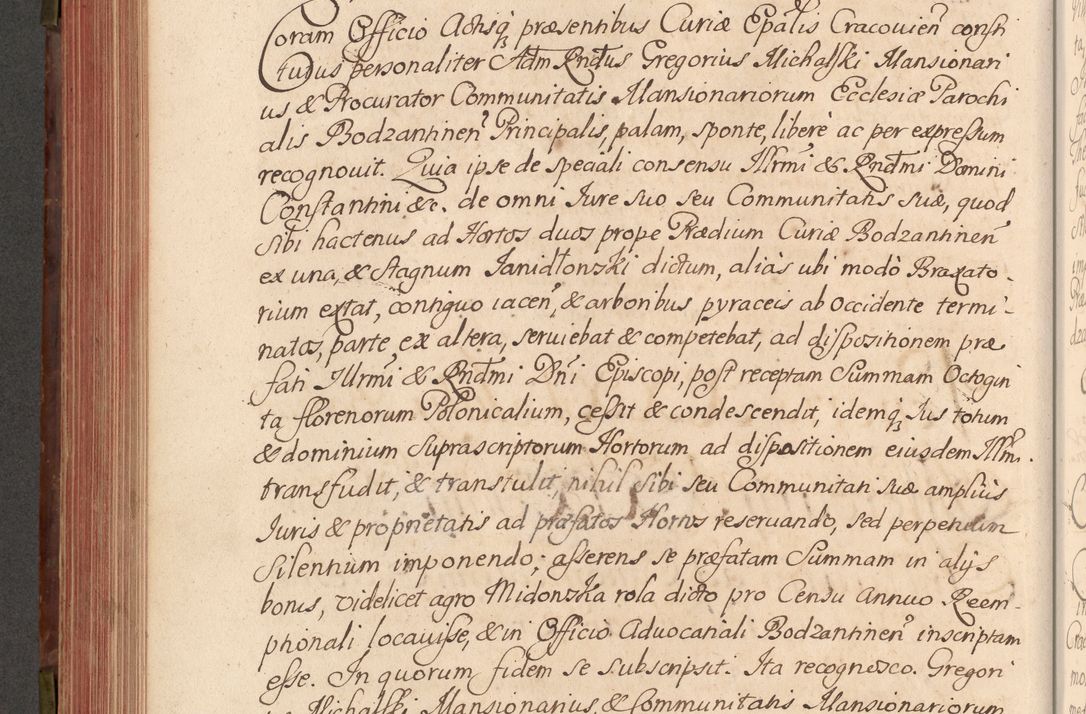 Coram Officio Actisq̨ præsentibus Curiæ Epalis Cracovien̄ consti
tutus personaliter Adm Rndus Gregorius Michalski Mansionari
us & Procurator Communitatis Mansionariorum Ecclesiæ Parochi
alis Bodzantinen̄ Principalis, palam, sponte, liberè ac per expressum
recognovit. Quia ipse de speciali consensu Illrmi & Rndmi Domini
Constantini &c. de omni Iure suo seu Communitatis suæ, quod
sibi hactenus ad Hortos duos prope Prædium Curiæ Bodzantinen̄
ex una, & Stagnum Janidłonzki dictum, aliàs ubi modò Braxato-
rium extat, contiguo iacen̄, & arboribus pyraceis ab Occidente termi-
natos, parte ex altera, serviebat & competebat, ad dispositionem præ
fati Illrmi & Rndmi Dni Episcopi, post receptam Summam Octogin
ta florenorum Polonicalium, cessit & condescendit, idemq̨ Ius totum
& dominium Suprascriptorum Hortorum ad dispositionem eiusdem Illrmi.
transfudit, & transtulit, nihil sibi seu Communitati suæ ampliùs
Iuris & proprietatis ad præfatos Hortos reservando, sed perpetuum
Silentium imponendo; asserens se præfatam Summam in alijs
bonis, videlicet agro Midonzka rola dicto pro Censu annuo Reem-
ptionali locavisse, & in Officio Advocatiali Bodzantinen̄ inscriptam
esse. In quorum fidem se subscripsit. Ita recognosco. Gregori
us Michalski Mansionarius, & Communitatis Mansionariorum